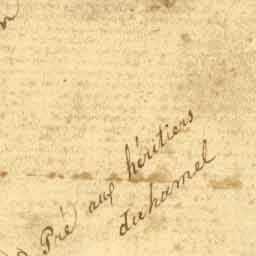 Pré aux héritiers
duhamel